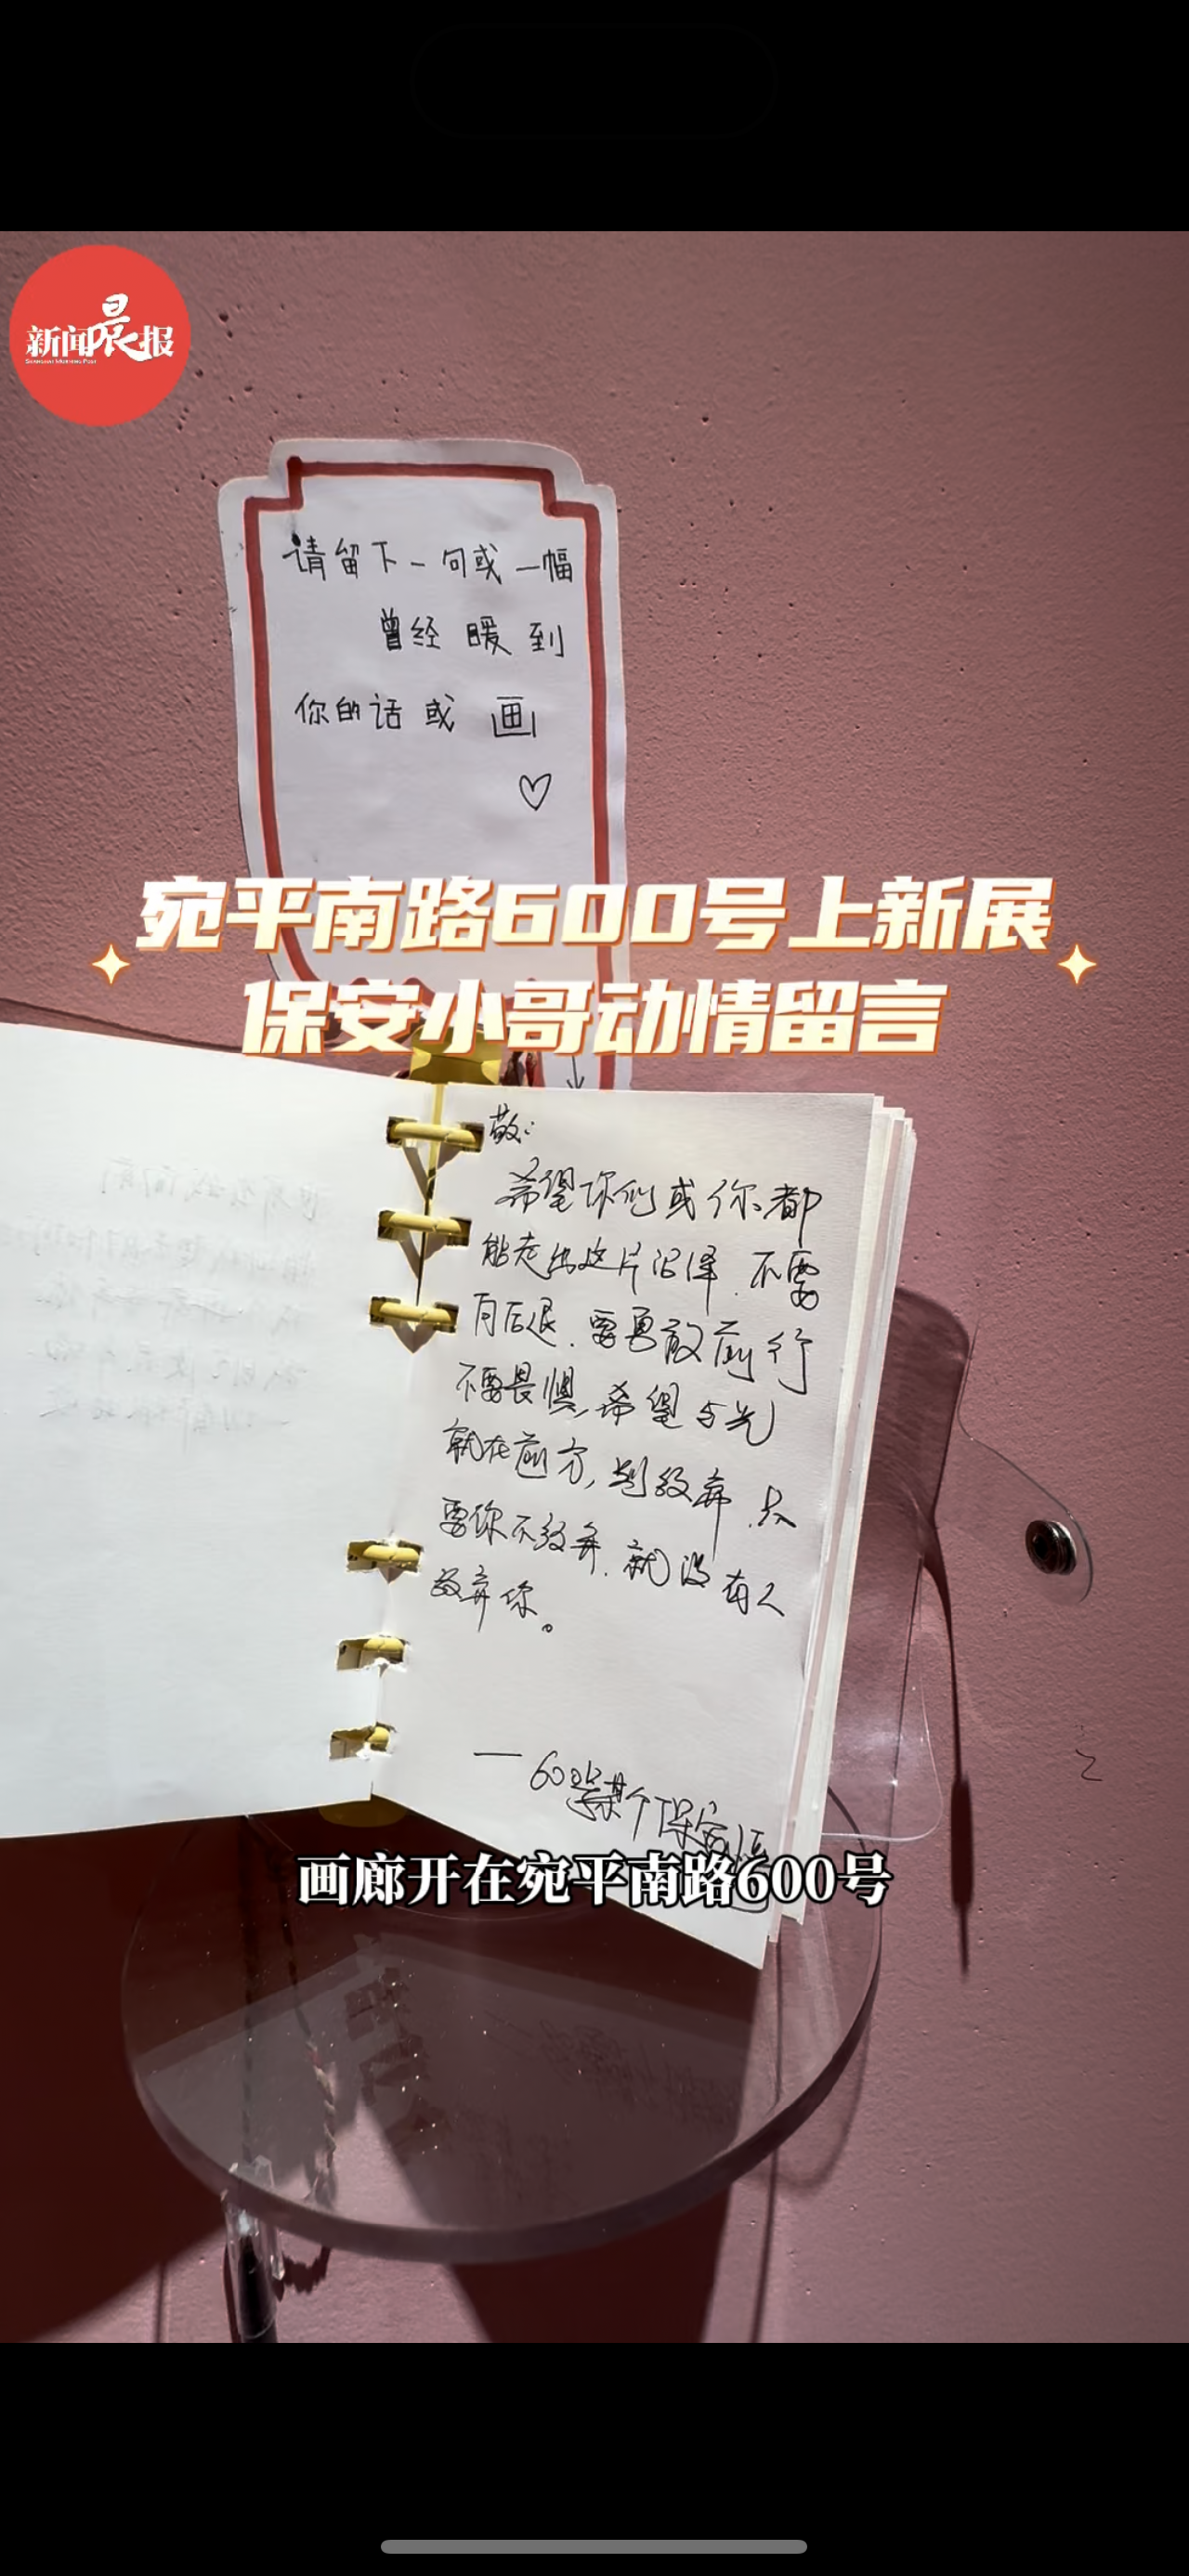 新闻晨报
SHANGHAI MORNING POST
请留下一句或一幅
曾经暖到
你的话或画
宛平南路600号上新展
保安小哥动情留言
敬:
希望你们或你都
能走出这片沼泽.不要
向后退.要勇敢前行
不要畏惧,希望与光
就在前方,别放弃.只
要你不放弃.就没有人
放弃你。
—600号某个保安
画廊开在宛平南路600号